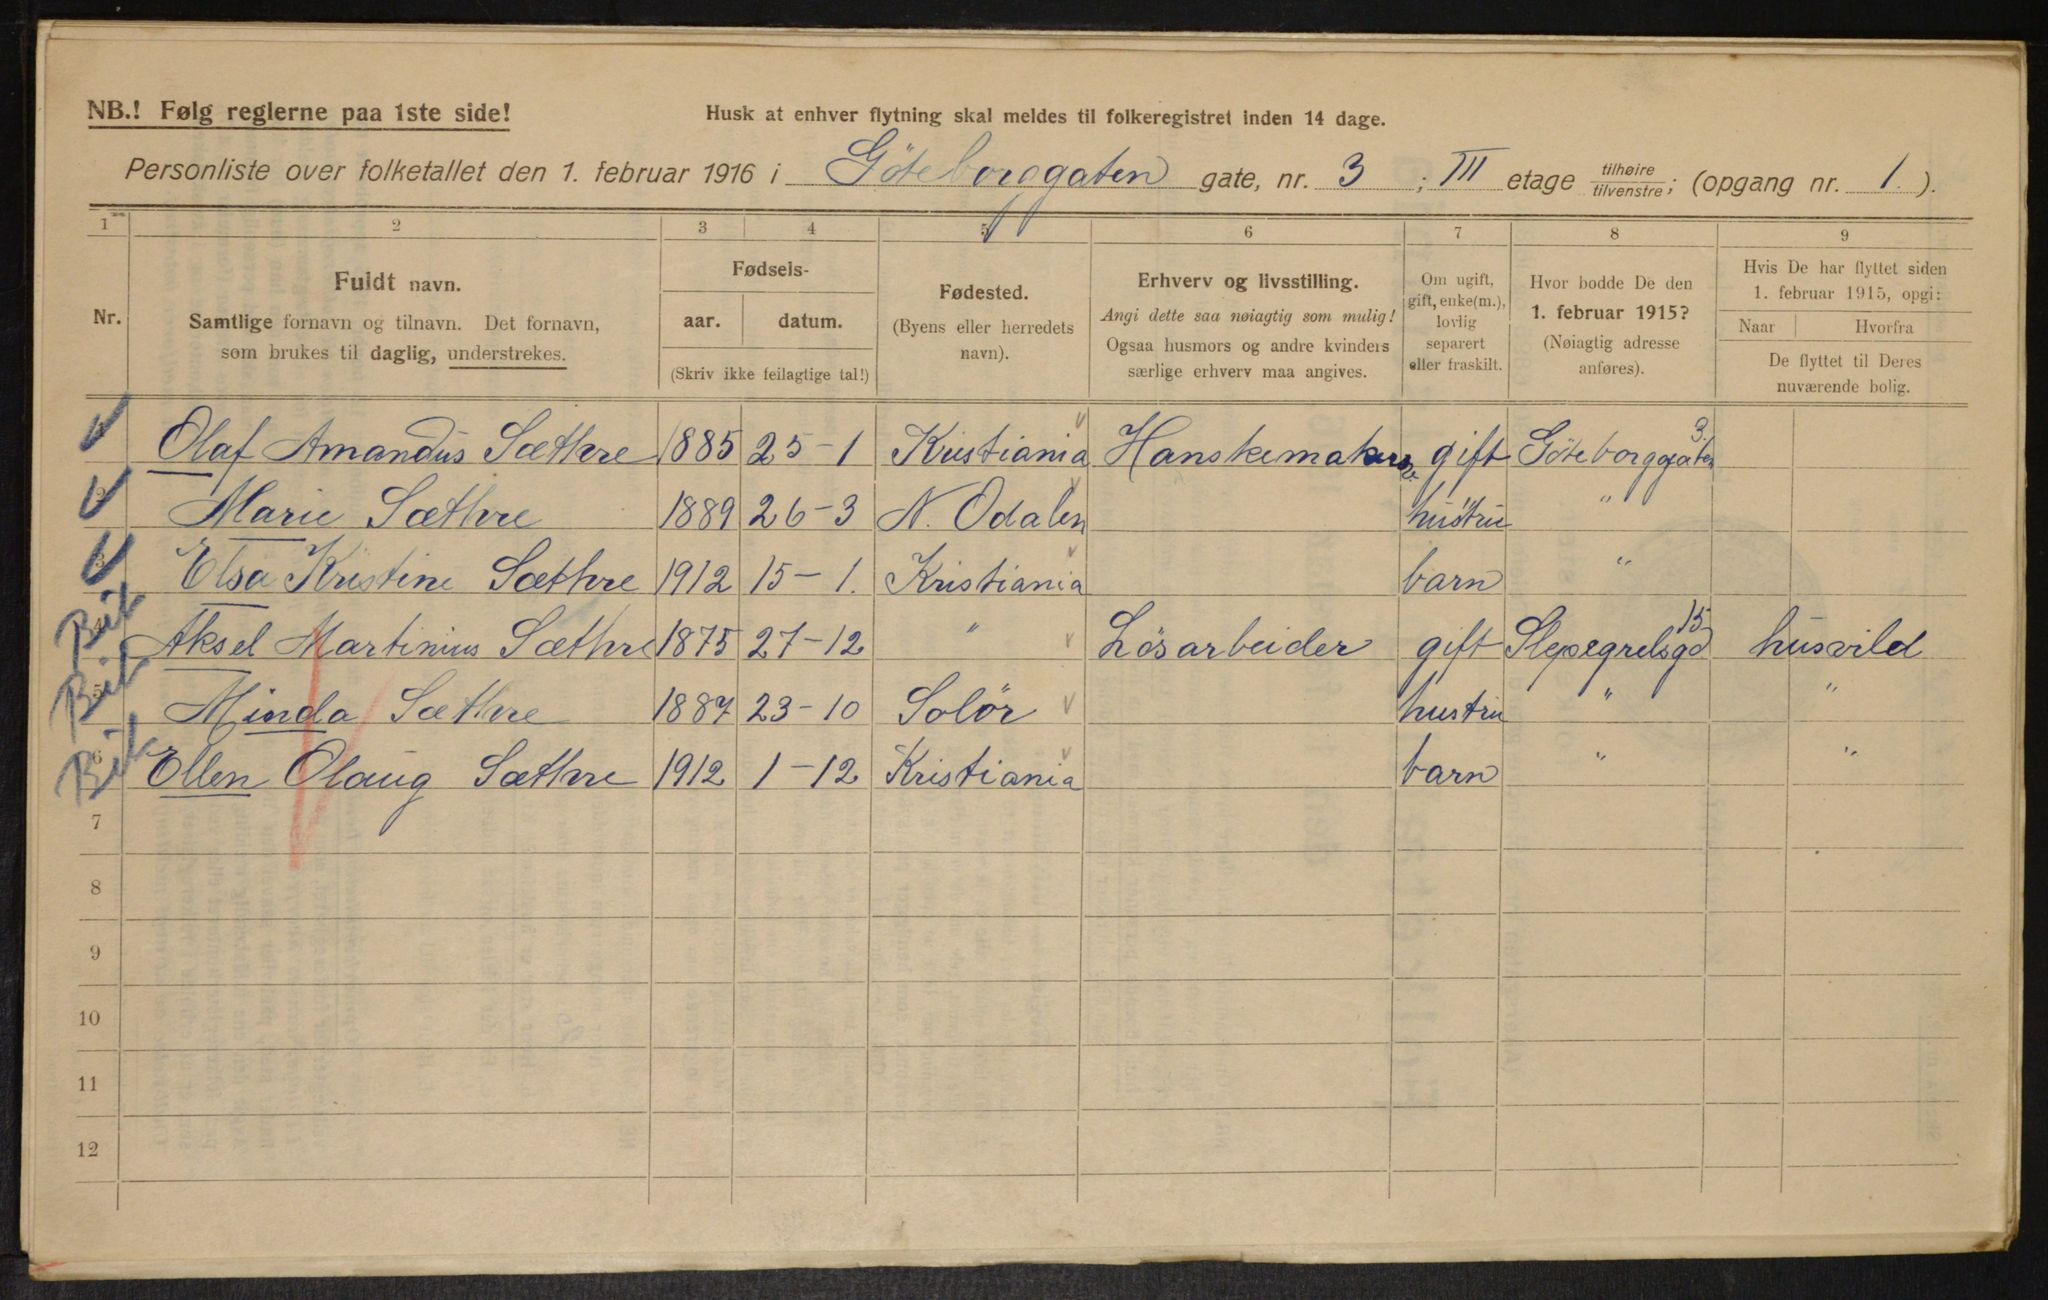 NB.! Følg reglerne paa 1ste side!
Husk at enhver flytning skal meldes til folkeregistret inden 14 dage.
Personliste over folketallet den 1. februar 1916 i Göteborggaten gate, nr. 3 ; III etage tilhøire tilvenstre ; (opgang nr. 1.).
1 2 3 4 5 6 7 8 9
Nr.
Fuldt navn.
Samtlige fornavn og tilnavn. Det fornavn,
som brukes til daglig, understrekes.
Fødsels-
aar. datum.
(Skriv ikke feilagtige tal!)
Fødested.
(Byens eller herredets
navn).
Erhverv og livsstilling.
Angi dette saa nøiagtig som mulig!
Ogsaa husmors og andre kvinders
særlige erhverv maa angives.
Om ugift,
gift, enke(m.),
lovlig
separert
eller fraskilt.
Hvor bodde De den
1. februar 1915?
(Nøiagtig adresse
anføres).
Hvis De har flyttet siden
1. februar 1915, opgi:
Naar Hvorfra
De flyttet til Deres
nuværende bolig.
Olaf Amandus Sæthre 1885 25-1 Kristiania Hanskemaker gift Göteborggaten 3.
Marie Sæthre 1889 26-3 N. Odalen hustru "
3 Elsa Kristine Sæthre 1912 15-1. Kristiania barn "
Aksel Martinius Sæthre 1875 27-12 " Lösarbeider gift Slepegrelsgd 15 husvild
5 Minda Sæthre 1887 23-10 Solör hustru " "
6 Ellen Olaug Sæthre 1912 1-12 Kristiania barn " "
7
8
9
10
11
12